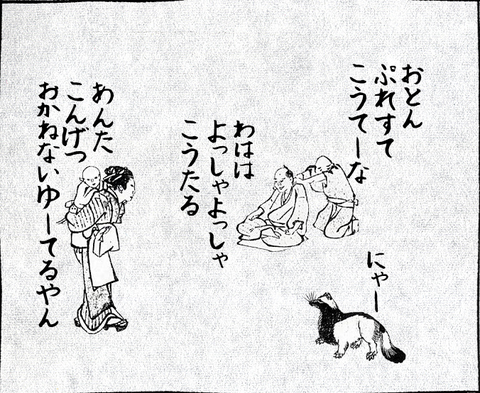 おとん
ぷれすて
こうてーな
わはは
よっしゃよっしゃ
こうたる
にゃー
あんた
こんげつ
おかねないゆーてるやん